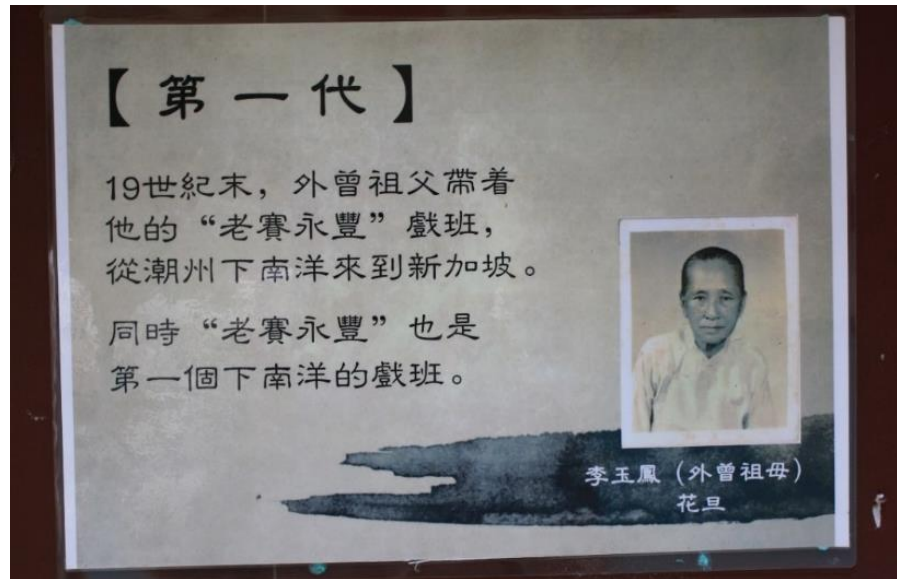 【第一代】
19世紀末，外曾祖父帶着
他的“老賽永豐”戲班，
從潮州下南洋來到新加坡。
同時“老賽永豐”也是
第一個下南洋的戲班。
李玉鳳（外曾祖母）
花旦